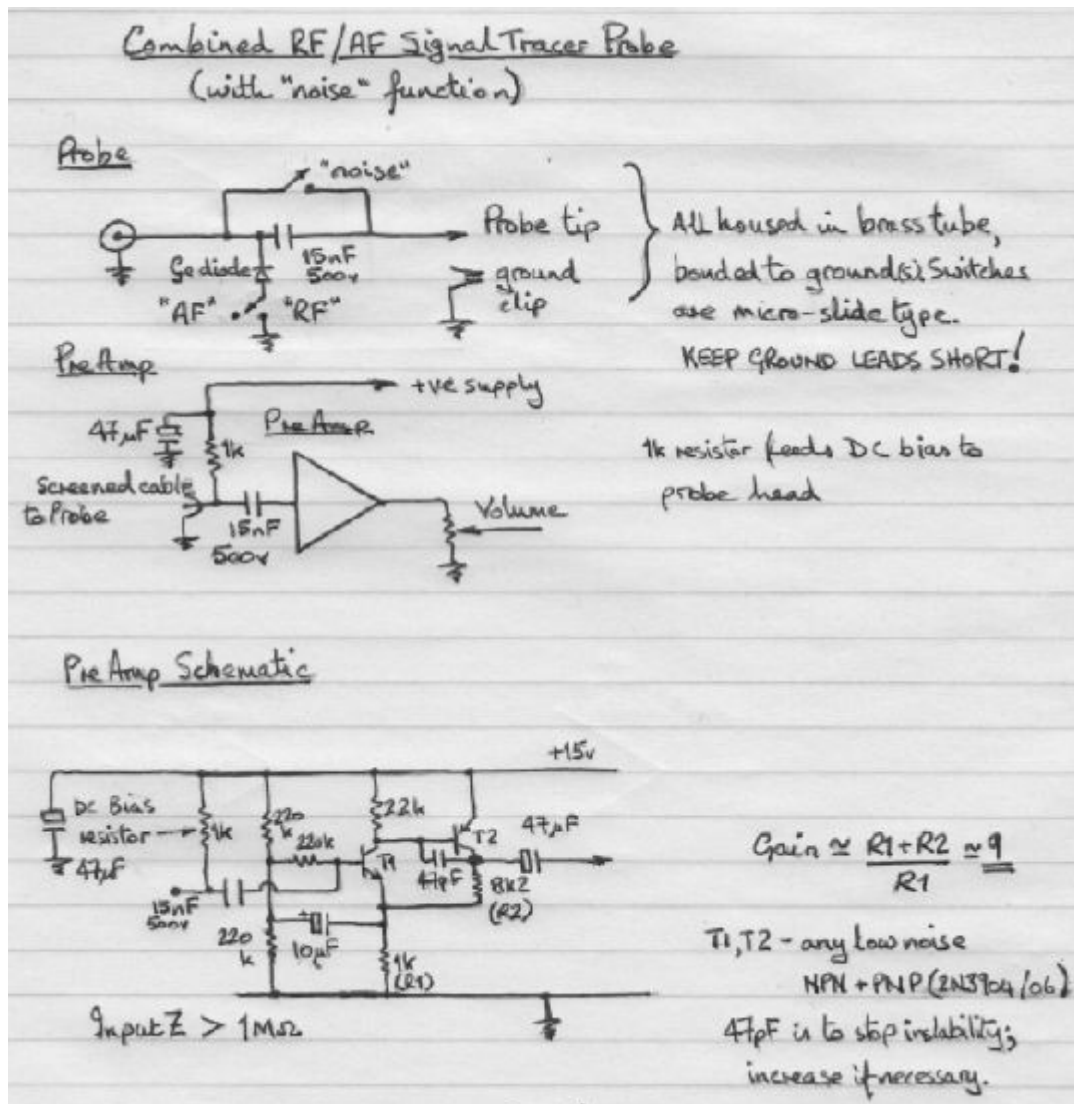 Combined RF/AF Signal Tracer Probe
(with "noise" function)
Probe
"noise"
Probe tip
15nF
500v
Ge diode
ground
clip
"AF" "RF"
All housed in brass tube,
bonded to ground(s). Switches
are micro-slide type.
KEEP GROUND LEADS SHORT!
Pre Amp
+ve supply
47μF
1k
Pre Amp
Screened cable
to Probe
15nF
500v
Volume
1k resistor feeds DC bias to
probe head
Pre Amp Schematic
+15v
DC Bias
resistor
1k
47μF
220
k
220k
22k
T1
T2
47pF
47μF
8k2
(R2)
15nF
500v
220
k
+
10μF
1k
(R1)
Input Z > 1MΩ
Gain ≃ R1+R2 ≃ 9
R1
T1,T2 - any low noise
NPN + PNP (2N3904/06)
47pF is to stop instability;
increase if necessary.